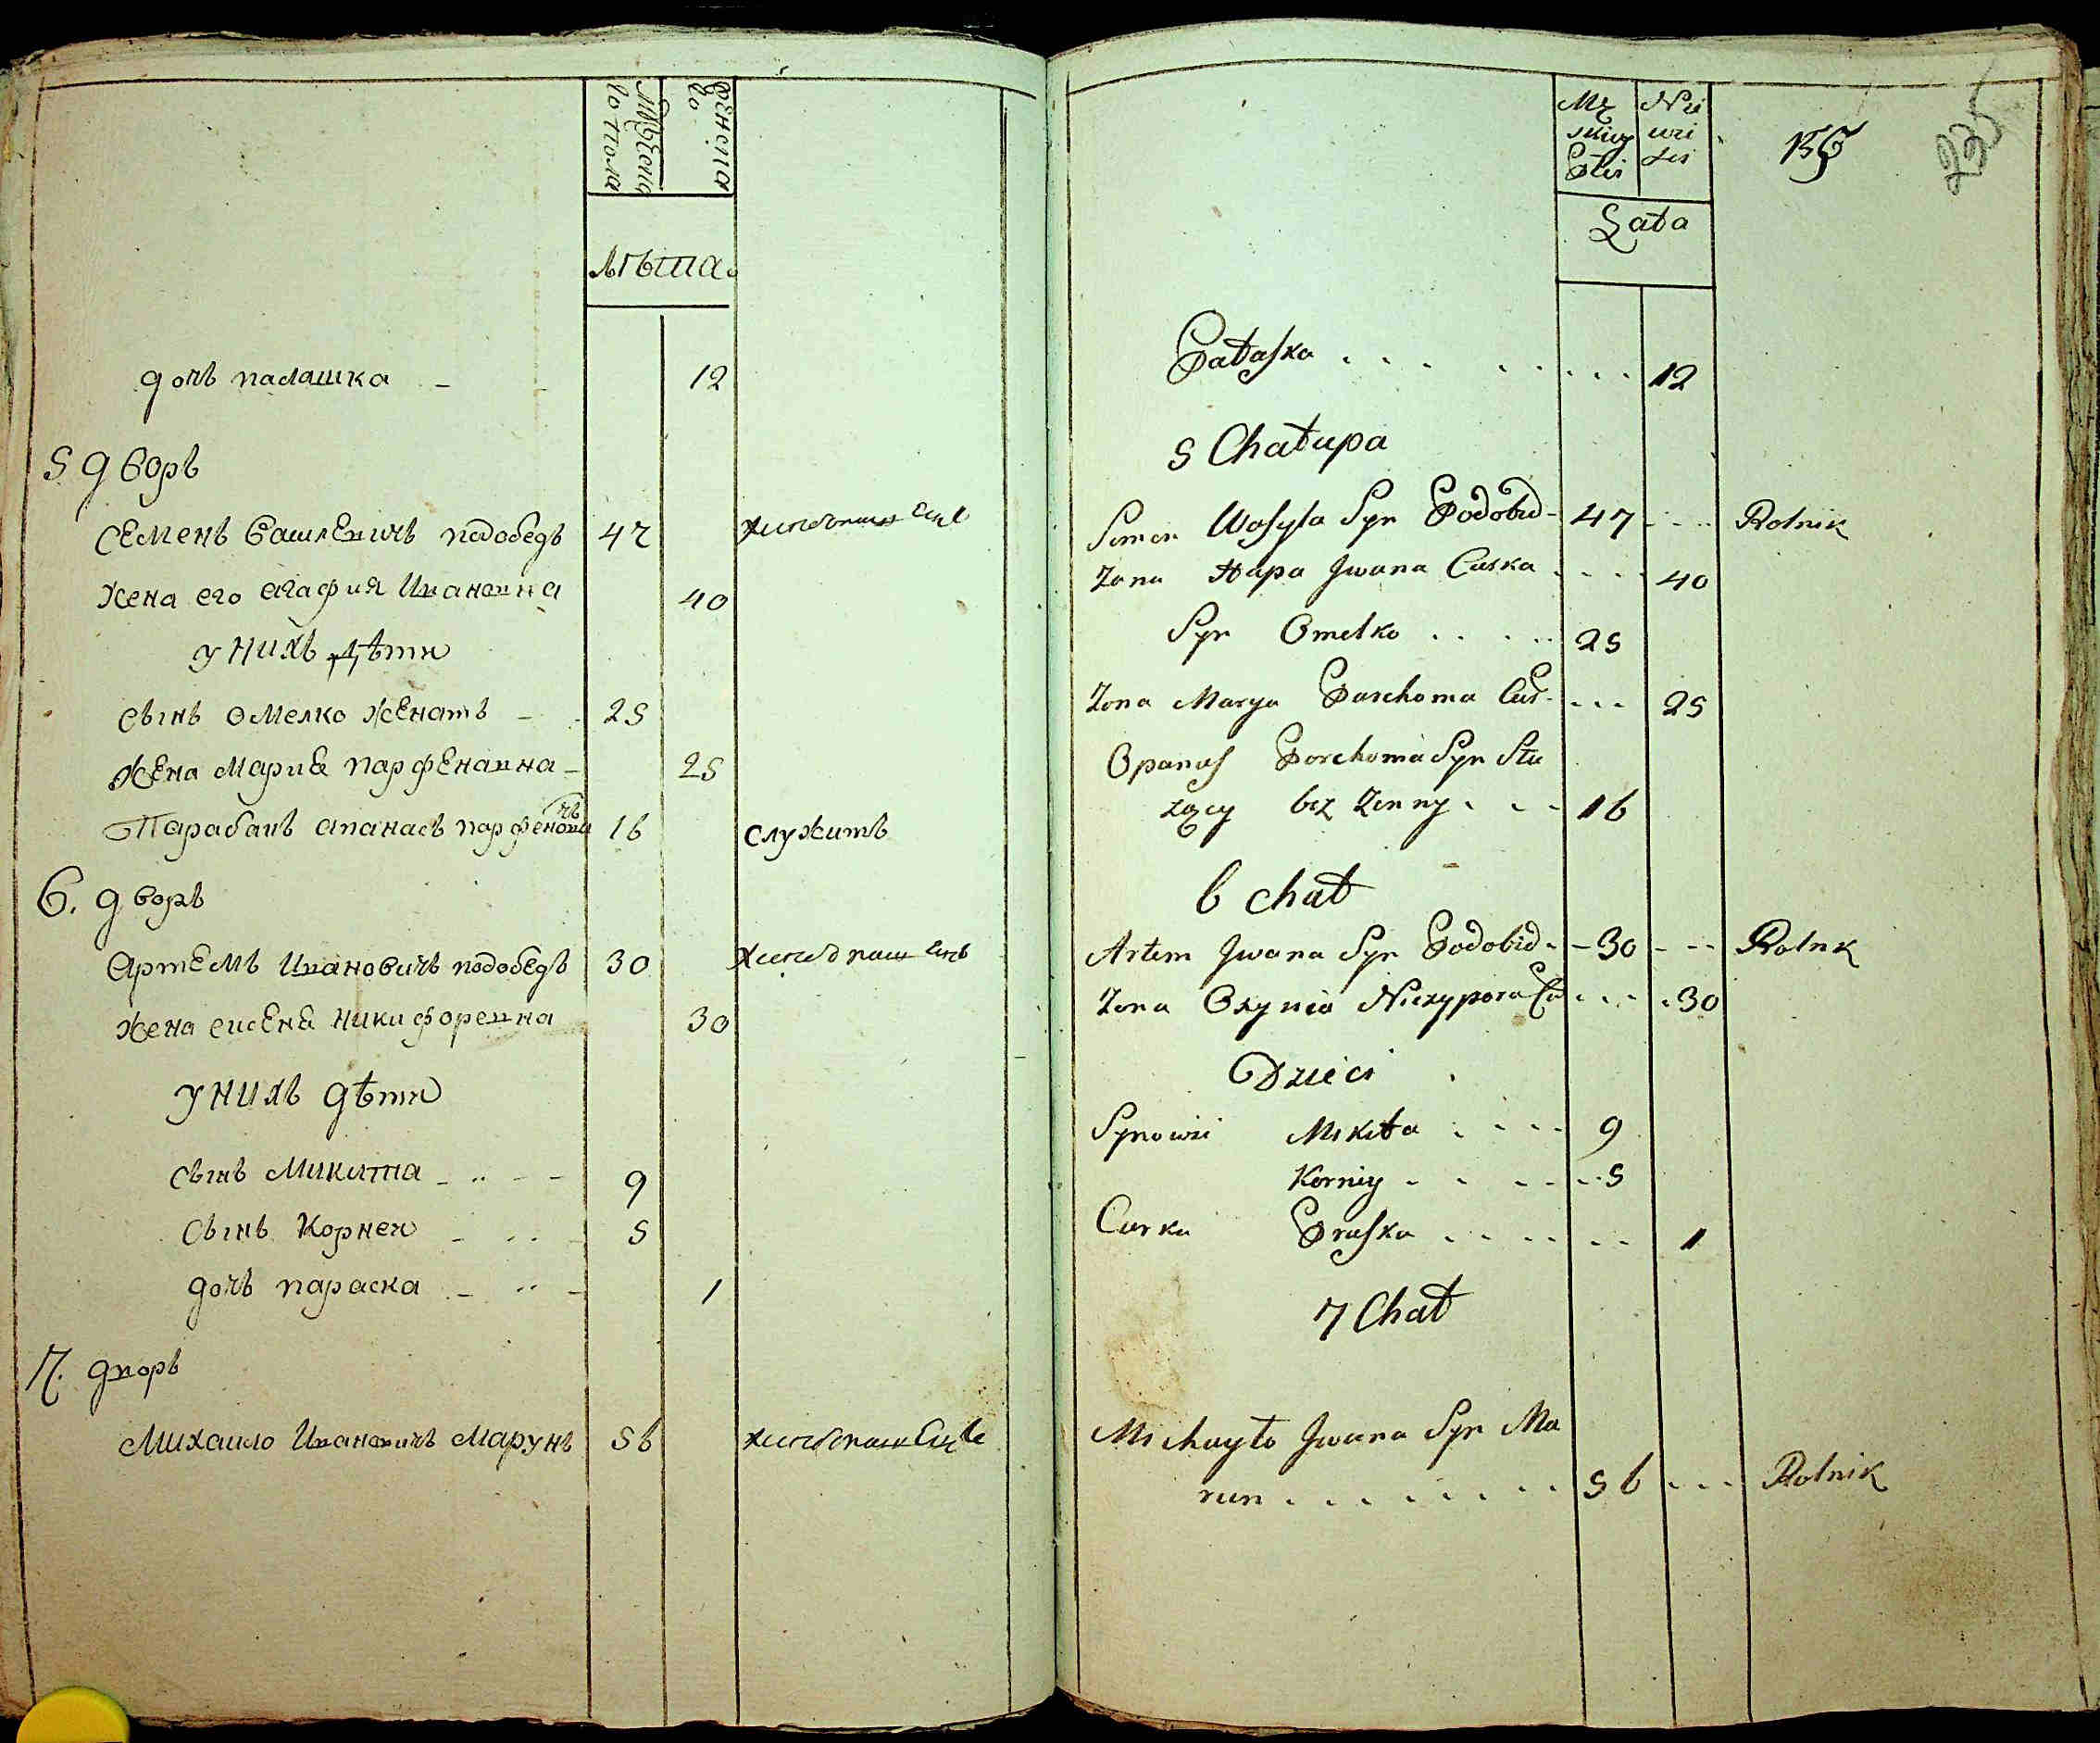 Мужеска
го пола
женска
го
лѣта
дочь палашка 12
5 дворъ
Семенъ Василевичъ подобедъ 47 хлебопашецъ
жена его агафия Ивановна 40
у нихъ дѣти
сынъ омелко женатъ 25
жена Мария парфеновна 25
Парабакъ апанасъ парфеновичъ 16 служитъ
6. дворъ
Артемъ Ивановичъ подобедъ 30 хлебопашецъ
жена Никифоровна 30
у нихъ дѣти
сынъ Микита 9
сынъ Корней 5
дочь параска 1
7. дворъ
Михаило Ивановичъ Марунъ 56 хлебопашецъ
Mę
skiey
Płci
Nie
wie
sci
Łata
225
Pałaska 12
5 Chałupa
Semen Wasyla Syn Podobid 47 Rolnik
Zona Hapa Jwana Curka 40
Syn Omelko 25
Zona Marya Parchoma Cur 25
Opanas Porchoma Syn Słu
zący bez Zenny 16
6 chał
Artem Jwana Syn Podobid 30 Rolnk
Zona Oxynia Niczypora Cu 30
Dzieci
Synowie Mikita 9
Korniy 5
Curka Praska 1
7 Chał
Michayło Jwana Syn Ma
run 56 Rolnik